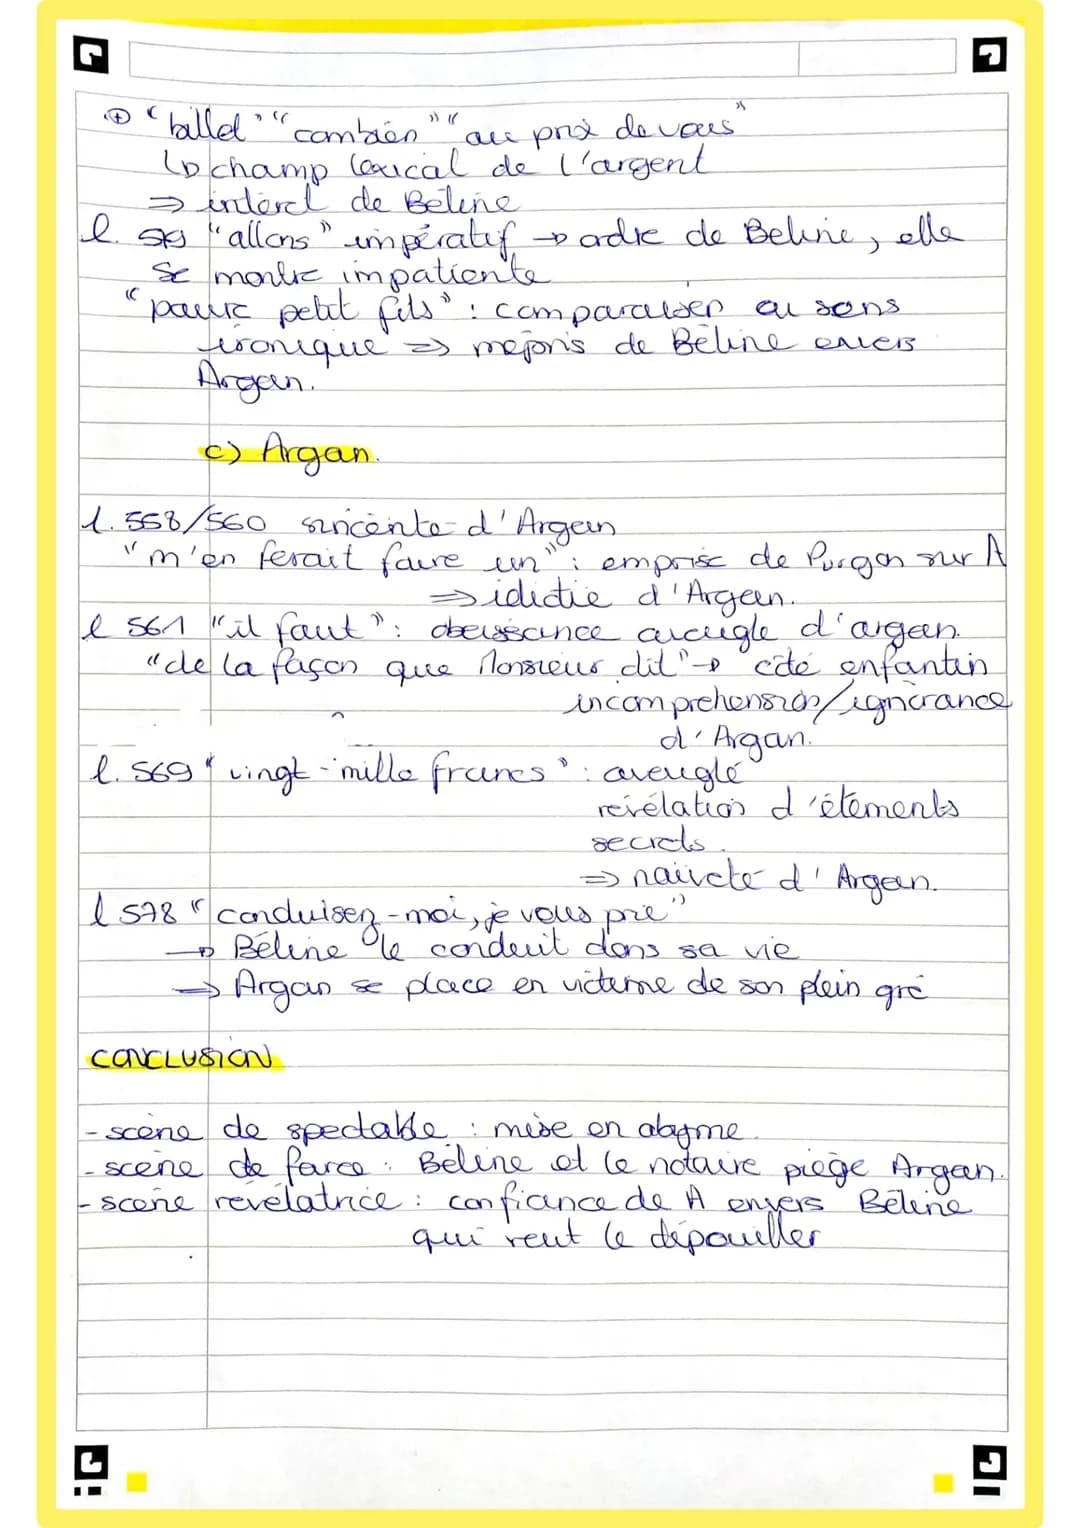 ⊕ "billet" "combien" "au prix de vous"
↳ champ lexical de l'argent
⇒ intérêt de Béline
l. "allons" impératif → ordre de Béline, elle
se montre impatiente
"pauvre petit fils" : comparaison au sens
ironique ⇒ mépris de Béline envers
Argan.
c) Argan.
l. 558/560 sincérité d'Argan
"m'en ferait faire un" : emprise de Purgon sur A
⇒ idiotie d'Argan.
l 561 "il faut" : obeissance aveugle d'argan.
"de la façon que Monsieur dit" → côté enfantin
incomprehension/ignorance
d'Argan.
l. 569 "vingt-mille francs" : aveuglé
révélation d'éléments
secrets.
⇒ naïveté d'Argan.
l 578 "conduisez-moi, je vous prie"
→ Béline le conduit dans sa vie
→ Argan se place en victime de son plein gré
CONCLUSION
- scène de spectable : mise en abyme.
- scène de farce : Béline et le notaire piège Argan.
- scène révélatrice : confiance de A envers Béline
qui veut le dépouiller